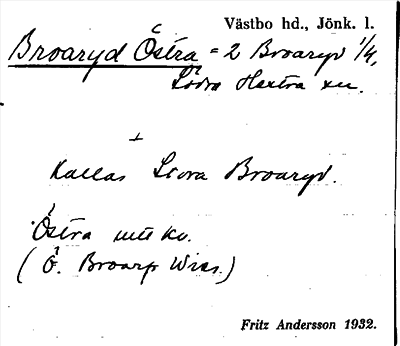 Västbo hd., Jönk. l.
Broaryd Östra = 2 Broaryd 1/4,
Södra Hestra sn.
Kallas Stora Broaryd.
Östra utt kv.
(Ö. Broarp Wiss.)
Fritz Andersson 1932.